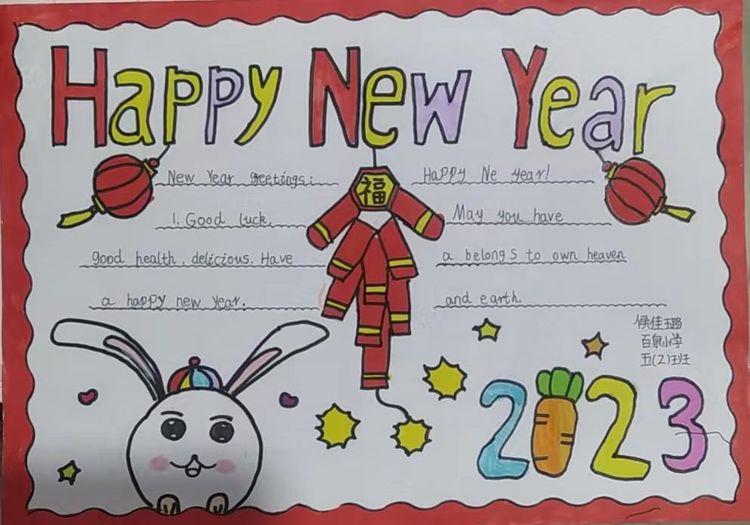 Happy New Year
New Year greetings:
1. Good luck,
good health, delicious. Have
a happy new year.
福
Happy Ne year!
May you have
a belongs to own heaven
and earth
侯佳璐
百泉小学
五(2)班
2023